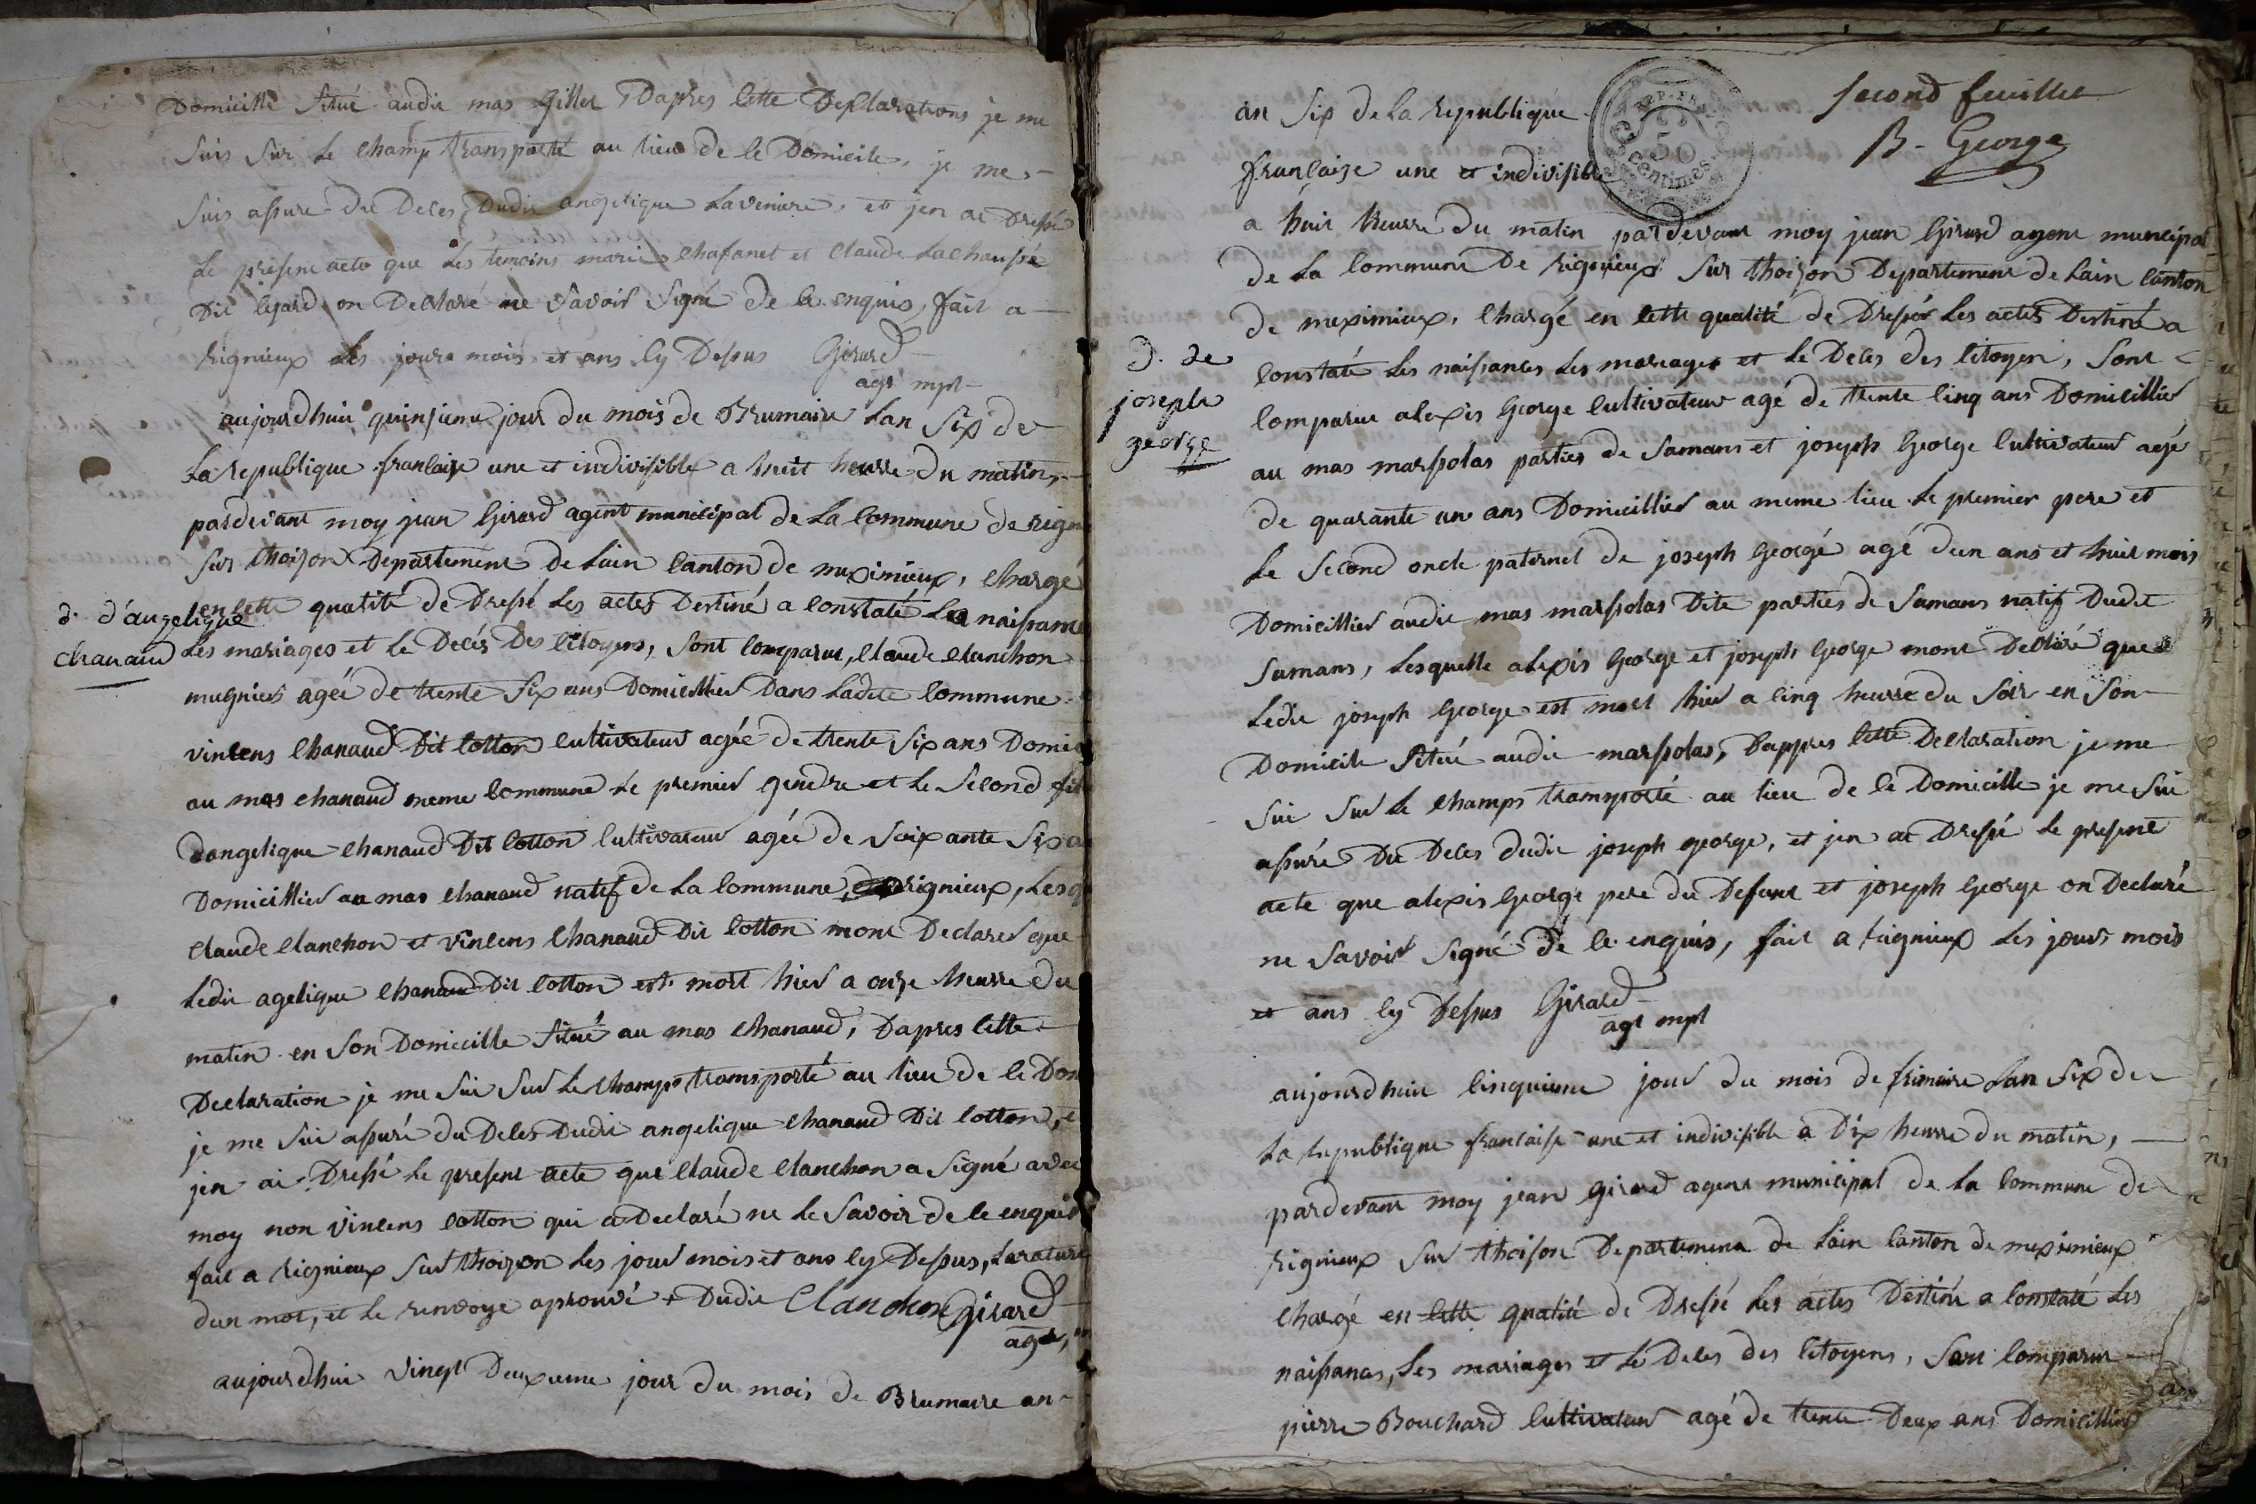 Domicille situé audit mas gillet Dapres cette Desclarations je me
suis sur le champ transporté au lieu de ce Domicile, je me
suis assuré du Deces Dudit angelique Laveniere, et jen ai Dressé
Le present acte que Les temoins marie chafanet et Claude Lachaussé
Dit on Declaré ne savoir Signé de ce enquis, fait a
Rignieux Les jours mois et ans cy Dessus Girard
agt mpl
aujourdhui quinsieme jour du mois de Brumaire Lan Six de
La republique francaise une et indivisible a huit heurre du matin,
pardevant moy jean Girard agent municipal de la commune de rign
sur thoizon Departement de Lain canton de meximieux, chargé
d. d'angelique
chanaud
en cette qualité de Dressé Les actes Destiné a constaté Les naissance
Les mariages et le Decés Des citoyens, sont comparue, claude clanchon
mugnier agée de trente six ans Domicillier Dans Ladite commune
vincens chanaud Dit cotton cultivateur agée de trente six ans Domici
au mas chanaud meme commune le premier gendre et le second fil
dangelique chanaud Dit cotton cultivateur agée de soixante six a
Domicillier au mas chanaud natif de la commune rignieux, Lesq
claude clanchon et vincens chanaud Dit cotton mont Declarer que
Ledit agelique chanaud Dit cotton est mort hier a onze heurre du
matin en son Domicille situé au mas chanaud, Dapres cette
Declaration je me sui sur le champs transporté au lieu de ce Dom
je me sui assuré du Deces Dudit angelique chanaud Dit cotton, e
jen ai Dressé le present acte que claude clanchon a signé avec
moy non vincens cotton qui a Declaré ne le savoir de ce enquis
fait a rignieux sur thoizon Les jour mois et ans cy Dessus, La rature
dun mot, et le renvoye aprouvé + Dudit Clanchon Girard
agt,
aujourdhui vingt Deuxieme jour du mois de Brumaire an
second feuillet
B. George
REP. FRA
50
centimes
an six de la republique
francaise une et indivisible
a huit heurre du matin pardevant moy jean Girard agent muncipal
de la commune De rignieux sur thoizon Departement de Lain canton
de meximieux, chargé en cette qualité de Dressér Les actes Destiné a
d. de
joseph
george
constaté les naissances les mariages et le Deces des citoyen, sont
comparue alexis George cultivateur agé de trente cinq ans Domicillier
au mas marsolas parties de samans et joseph George cultivateur agé
de quarante un ans Domicillier au meme lieu le premier pere et
le second oncle paternel de joseph Georgé agé dun ans et huit mois
Domicillier audit mas marsolas Dite parties de samans natif Dudit
samans, Lesquelle alexis George et joseph George mont Declaré que
Ledit joseph George est mort hier a cinq heurre du soir en son
Domicile situé audit marsolas, Dappres cette Declaration je me
sui sur le champs transporté au lieu de ce Domicille je me sui
assuré Du Deces dudit joseph george, et jen ai Dressé le present
acte que alexis George pere du Defunt et joseph George on Declaré
ne savoir signé de ce enquis, fait a rignieux Les jours mois
et ans cy Dessus Girard
agt mpl
aujourdhui cinquieme jour du mois de frimaire Lan six de
La republique francaise une et indivisible a Dix heurre du matin,
pardevant moy jean girard agent municipal de la commune de
rignieux sur thoison Departement de Lain canton de meximieux
chargé en cette qualité de Dressé Les actes Destiné a constaté Les
naissances, Les mariages et le Deces des citoyens, sont comparu
pierre Bouchard cultivateur agé de trente Deux ans Domicillier